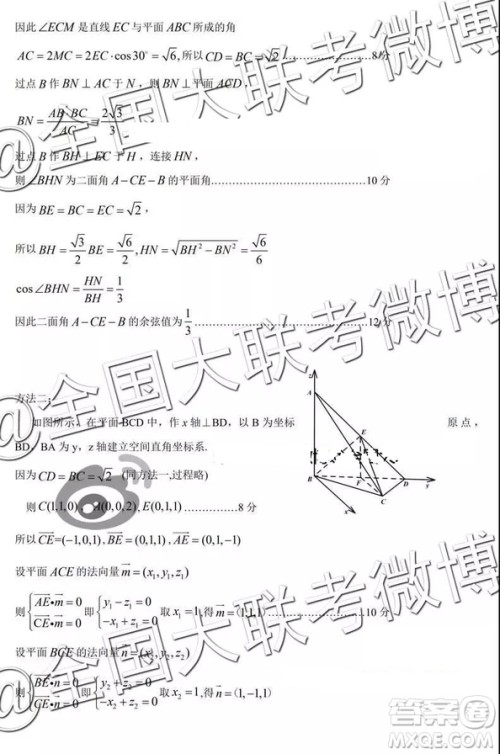 因此∠ECM 是直线 EC 与平面 ABC 所成的角
AC=2MC=2EC·cos30°=√6,所以CD=BC=√2 ……8分
过点 B 作 BN⊥AC 于 N，则 BN⊥平面 ACE,
BN=AB·BC/AC=2√3/3
过点 B 作 BH⊥EC 于 H，连接 HN，
则∠BHN 为二面角 A-CE-B 的平面角……10分
因为 BE=BC=EC=√2，
所以 BH=√3/2 BE=√6/2, HN=√(BH²-BN²)=√6/6
cos∠BHN=HN/BH=1/3
因此二面角 A-CE-B 的余弦值为1/3……12分
方法二：
如图所示，在平面 BCD 中，作 x 轴⊥BD，以 B 为坐标原点，
BD、BA 为 y，z 轴建立空间直角坐标系.
因为 CD=BC=√2 (同方法一,过程略)
则 C(1,1,0), A(0,0,2), E(0,1,1)……8分
所以 CE=(-1,0,1), BE=(0,1,1), AE=(0,1,-1)
设平面 ACE 的法向量 m=(x₁,y₁,z₁)
则{AE·m=0 CE·m=0 即{y₁-z₁=0 -x₁+z₁=0 取 x₁=1,得 m=(1,1,1)……10分
设平面 BCE 的法向量 n=(x₂,y₂,z₂)
则{BE·n=0 CE·n=0 即{y₂+z₂=0 -x₂+z₂=0 取 x₂=1,得 n=(1,-1,1)
z
A
E
B
F
D
y
C
x
@全国大联考微博
@全国大联考微博
@全国大联考微博
答案圈
MXQE.COM